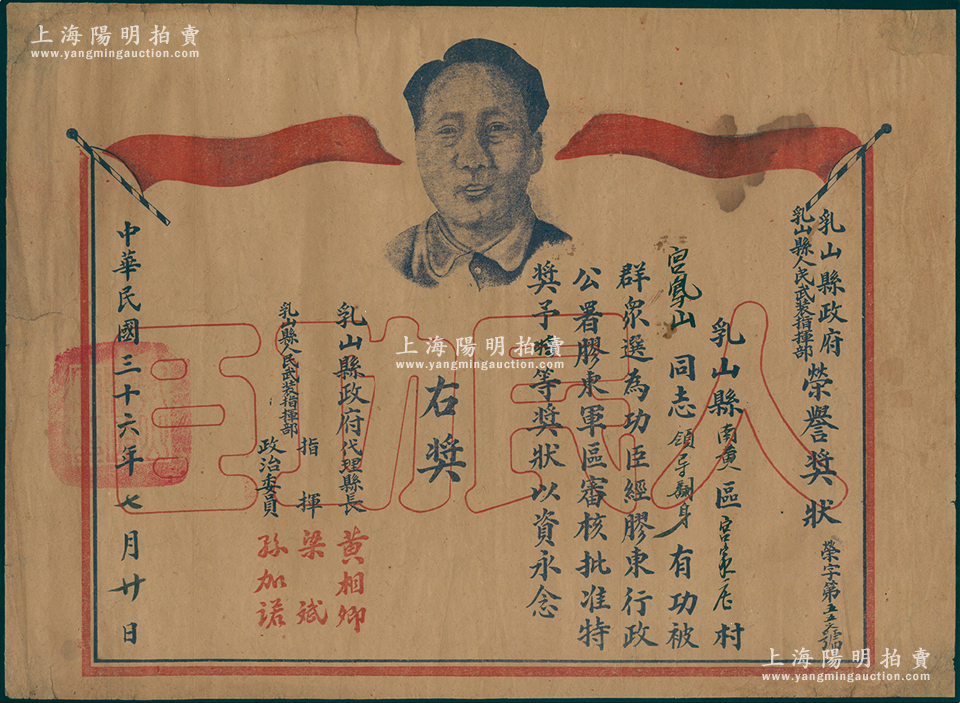 上海陽明拍賣
www.yangmingauction.com
乳山縣政府
乳山縣人民武裝指揮部
榮譽獎狀
榮字第五五
號
乳山縣南黃區宮家庄村
宮鳳山同志領导翻身有功被
群眾選為功臣經膠東行政
公署膠東軍區審核批准特
獎予特等獎狀以資永念
右獎
乳山縣政府代理縣長 黃相卿
乳山縣人民武裝指揮部
指揮 梁斌
政治委員 孫加諾
中華民國三十六年七月廿日
人民功臣
上海陽明拍賣
www.yangmingauction.com
上海陽明拍賣
www.yangmingauction.com